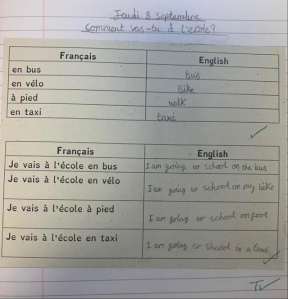 Jeudi 8 septembre
Comment vas-tu à l'école?
Français English
en bus Bus
en vélo Bike
à pied walk
en taxi taxi
Français English
Je vais à l'école en bus I am going to school on the bus
Je vais à l'école en vélo I am going to school on my bike
Je vais à l'école à pied I am going to school on foot
Je vais à l'école en taxi I am going to school in a taxi